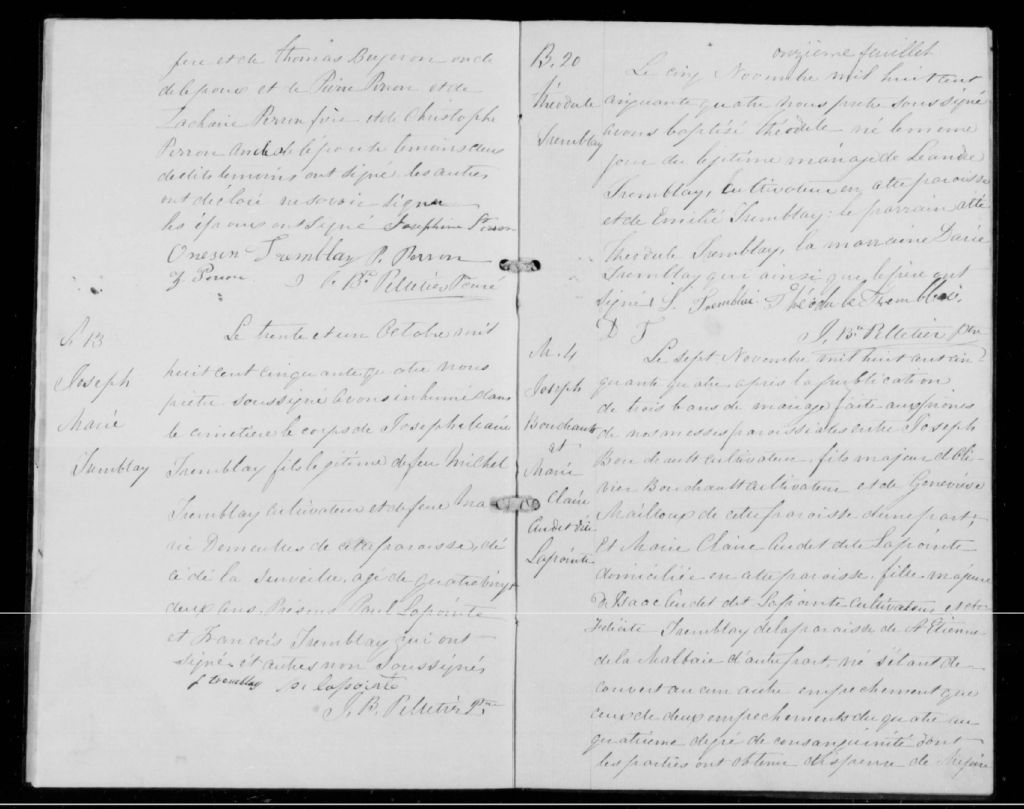 frère et de Thomas Bergeron oncle
de l'époux et de Pierre Perron et de
Zacharie Perron frère et de Christophe
Perron oncle de l'épouse temoins deux
de dits temoins ont signé les autres
ont déclaré ne savoir signer
les époux ont signé Josephine Perron
Oneson Tremblay P. Perron
Z Perron J. Bte Pelletier Ptre curé
S. 13
Joseph
Marie
Tremblay
Le trente et un Octobre mil
huit cent cinquante quatre nous
prêtre soussigné avons inhumé dans
le cimetière le corps de Joseph Marie
Tremblay fils legitime de feu Michel
Tremblay cultivateur et de feue Ma
rie Demeules de cette paroisse, dé
cédé la surveille, agé de quatre vingt
deux ans. Présens Paul Lapointe
et Francois Tremblay qui ont
signé et autres non soussignés
f tremblay P. lapointe
J. B. Pelletier Ptre
onzième feuillet
B. 20
Théodule
Tremblay
Le cinq Novembre mil huit cent
cinquante quatre nous prêtre soussigné
avons baptisé Théodule né le même
jour du légitime mariage de Léandre
Tremblay, cultivateur en cette paroisse
et de Emilie Tremblay; le parrain a été
Théodule Tremblay, la marraine Darie
Tremblay qui ainsi que le père ont
signé L. Tremblai Théodule Tremblais
D T J. Bte Pelletier Ptre
M. 4
Joseph
Boudreault
et
Marie
Claire
Audet dit
Lapointe
Le sept Novembre mil huit cent cin
quante quatre après la publication
de trois bans de mariage faite aux prones
de nos messes paroissiales entre Joseph
Boudreault cultivateur, fils majeur d'Oli
vier Boudreault cultivateur et de Geneviève
Mailloux de cette paroisse d'une part;
Et Marie Claire Audet dite Lapointe
domiciliée en cette paroisse, fille majeure
d'Isaac Audet dit Lapointe cultivateur et de
Félicité Tremblay de la paroisse de St Etienne
de la Malbaie d'autre part, ne s'étant dé
couvert aucun autre empechement que
ceux de deux empechements du quatre au
quatrieme degré de consanguinité dont
les parties ont obtenu dispense de Mgsire